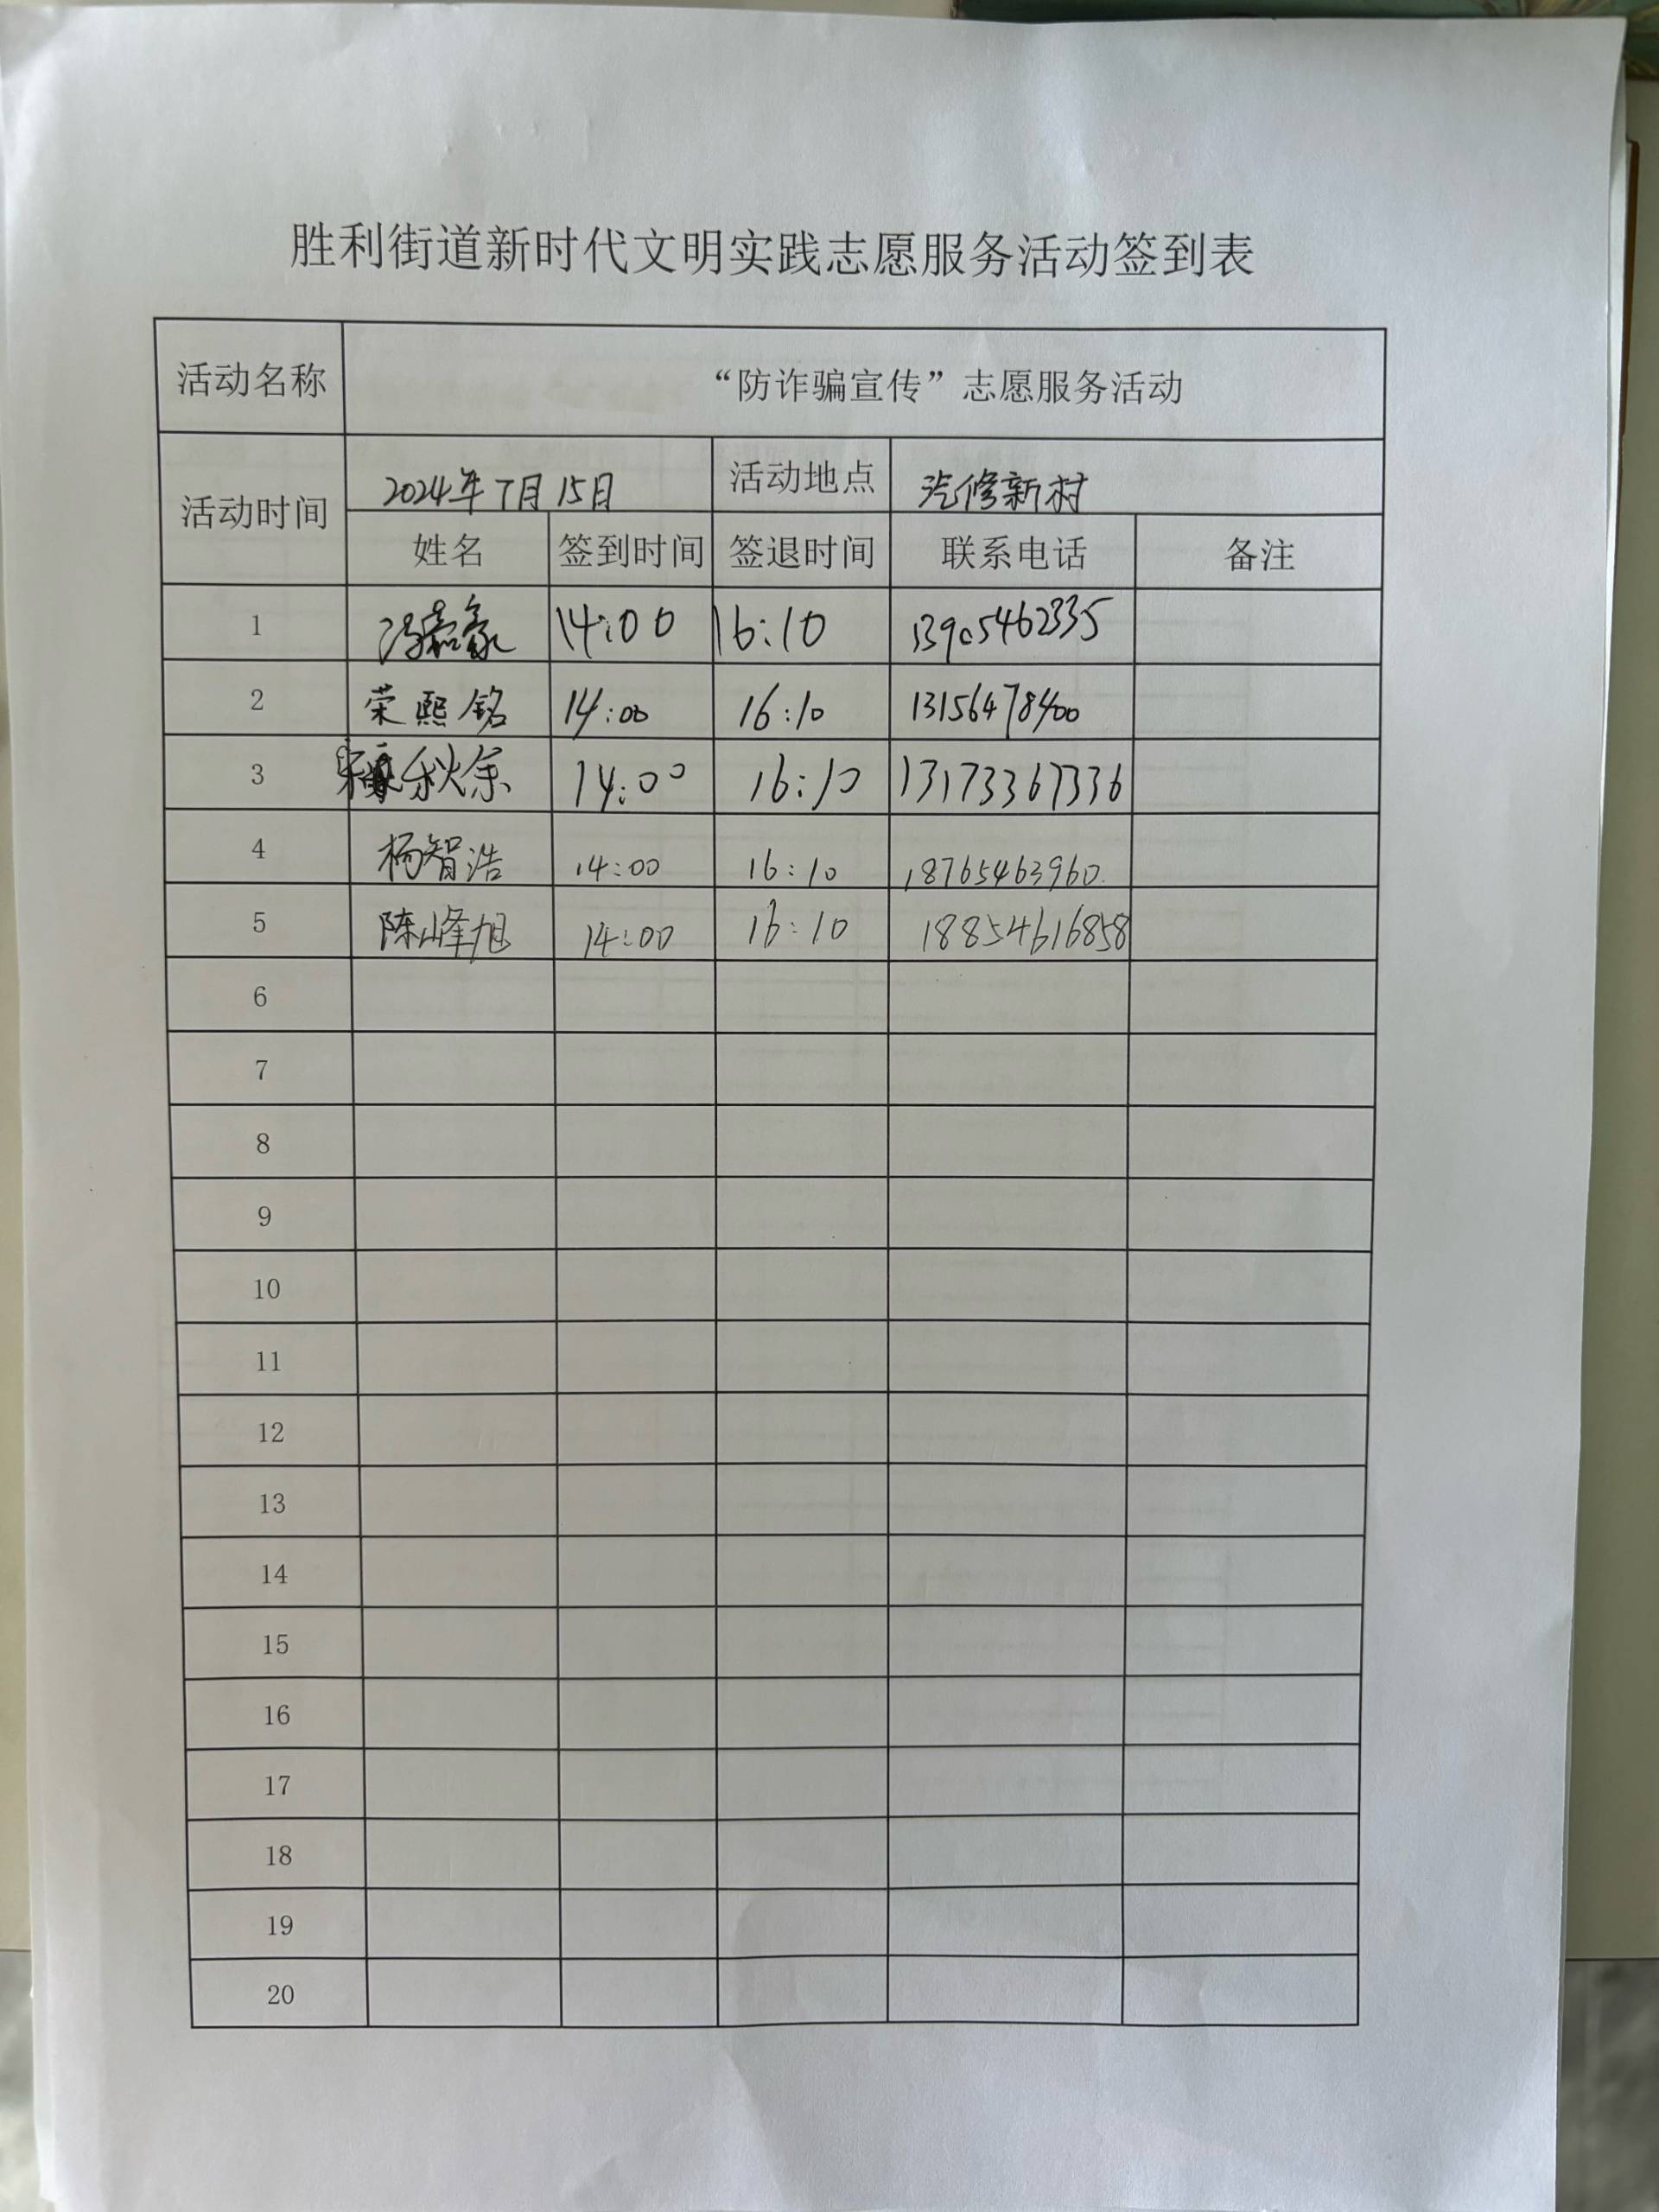 胜利街道新时代文明实践志愿服务活动签到表
活动名称 “防诈骗宣传”志愿服务活动
活动时间 2024年7月15日 活动地点 汽修新村
姓名 签到时间 签退时间 联系电话 备注
1 冯嘉豪 14:00 16:10 13905462335
2 荣熙铭 14:00 16:10 13156478400
3 秋余 14:00 16:10 13173367336
4 杨智浩 14:00 16:10 18765463960
5 陈峰旭 14:00 16:10 18854616858
6
7
8
9
10
11
12
13
14
15
16
17
18
19
20